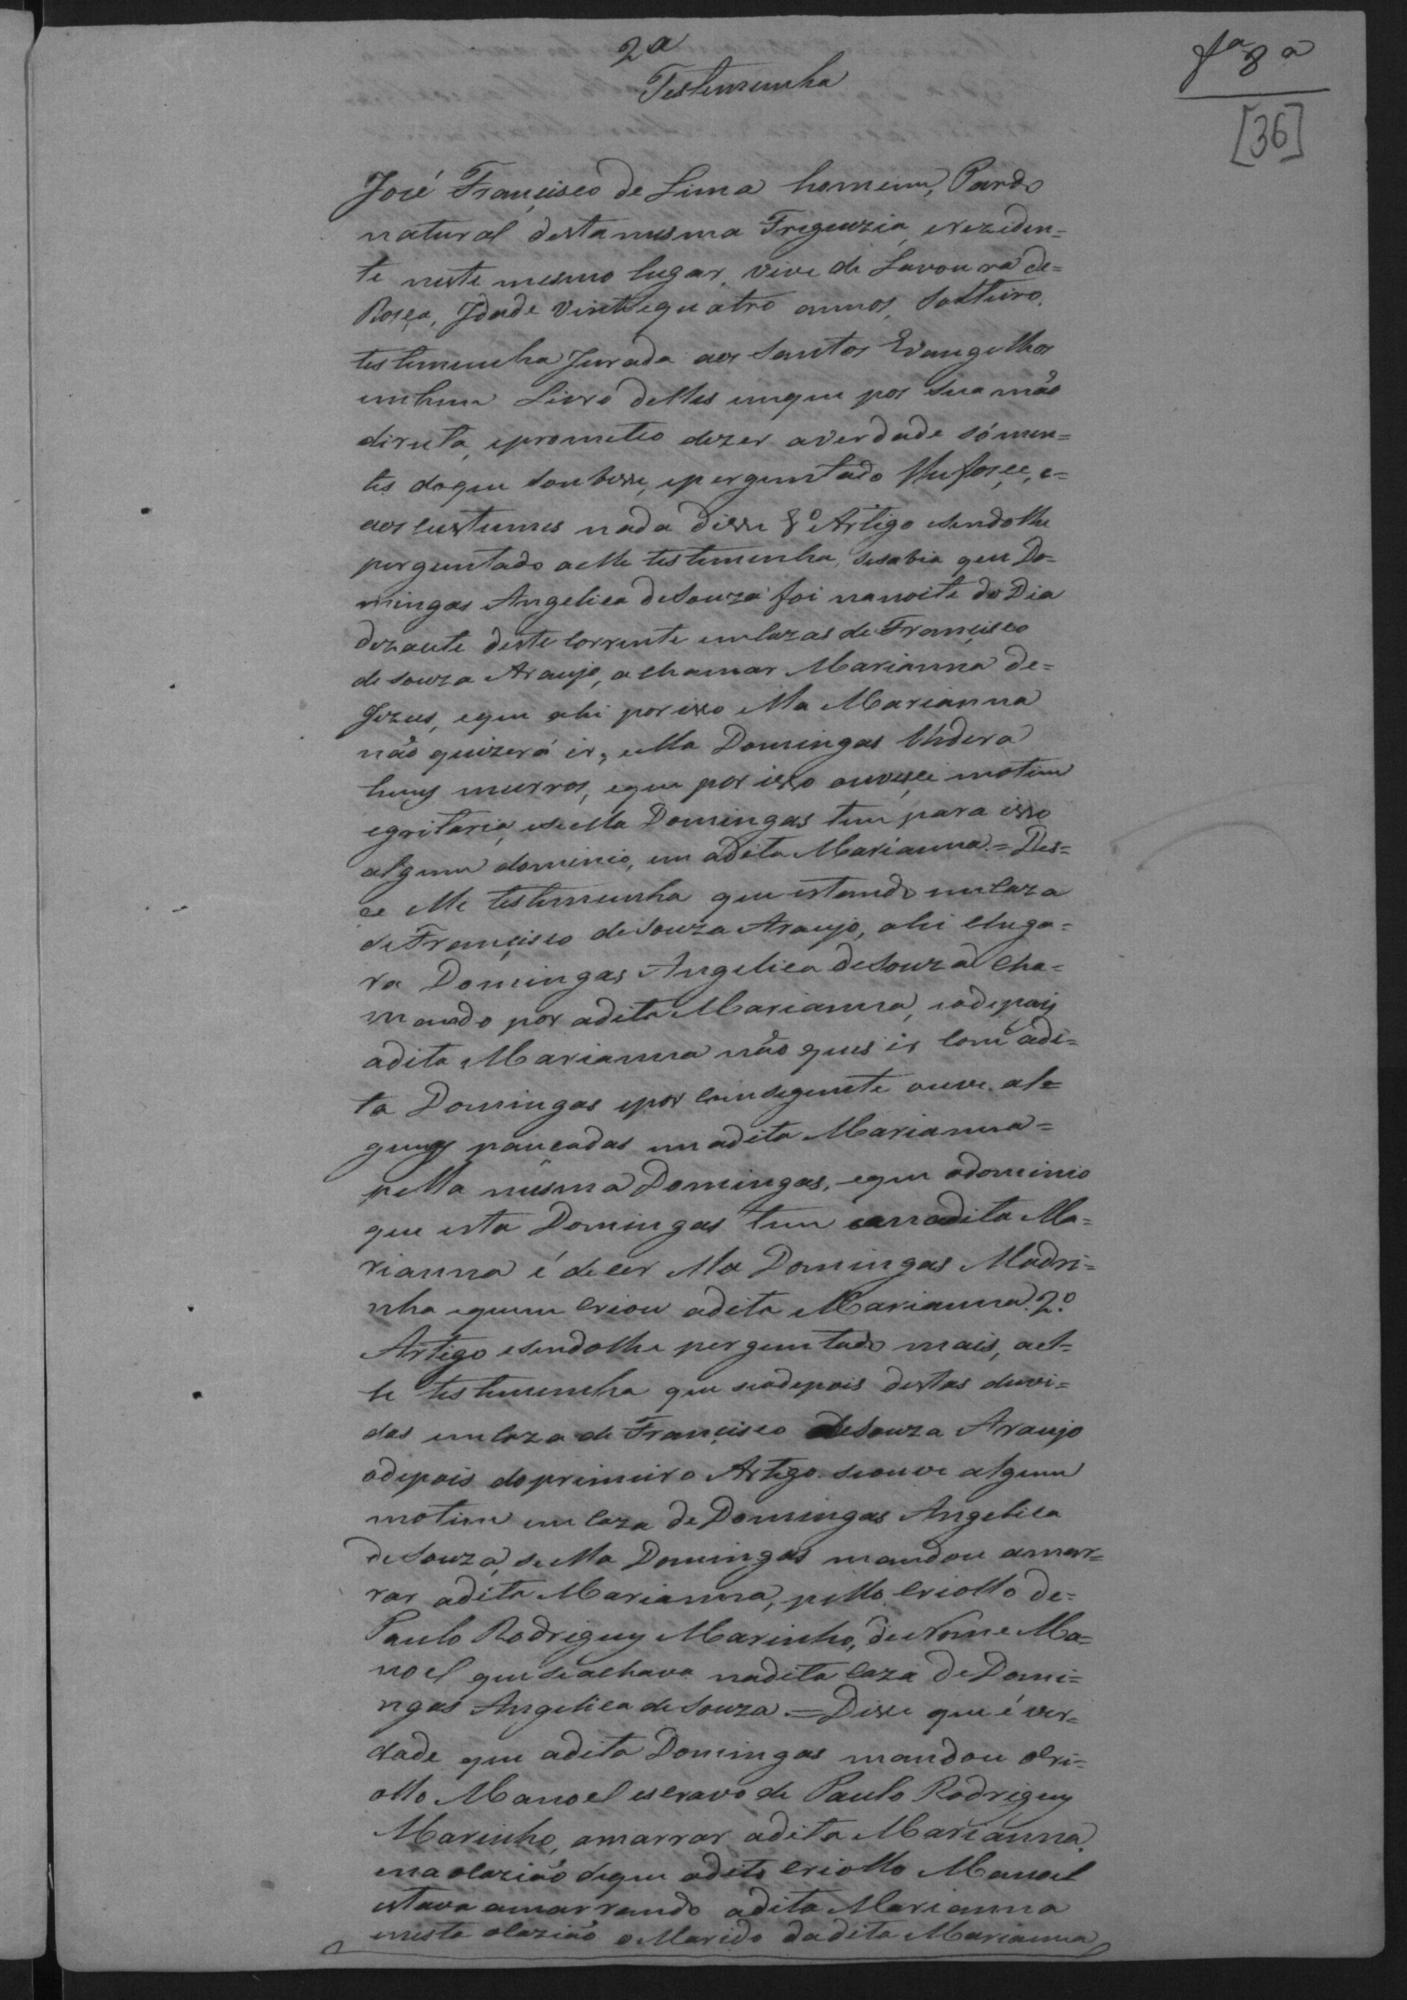 2a
Testimunha
fª 8ª
[36]
José Françisco de Lima homem, Pardo
natural desta mesma Freguezia, e reziden=
te neste mesmo lugar, vive de Lavoura de=
Rosça, Jdade Vinte e quatro annos, Solteiro.
testimunha Jurada aos Santos Evangelhos
em hum Livro delles em que pos sua mão
direita, e prometeo dezer a verdade sómen=
tes do que soubesse, e perguntado lhe fosçe, e=
aos custumes nada disse 1º Artigo e sendo lhe
perguntado a elle testimunha, se sabia que Do=
mingas Angelica de Souza foi na noite do Dia
dezaute deste corrente em cazas de Françisco
de Souza Araujo, a chamar Marianna de=
Jezus, e que ahi por isso ella Marianna
não quizerá ir, e ella Domingas lhe dera
huns murros, e que por isso ouvesçe motim
e gritaria, e se ella Domingas tem para isso
algum dominio, em a dita Marianna. = Des=
ce elle testimunha que estando em caza
de Françisco de Souza Araujo, ahi chega=
ra Domingas Angelica de Souza cha=
mando por a dita Marianna, e a depois
a dita Marianna não ques ir com a di=
ta Domingas e por conseguente ouve al=
guns pancadas em a dita Marianna=
pella mesma Domingas, e que o dominio
que esta Domingas tem em a dita Ma=
rianna é de cer ella Domingas Madri=
nha e quem criou a dita Marianna. 2º
Artigo e sendo lhe perguntado mais, a el=
le testimunha que se a depois destas duvi=
das em caza de Françisco de Souza Araujo
a depois do primeiro Artigo se ouve algum
motim em caza de Domingas Angelica
de Souza, se ella Domingas mandou amar=
rar a dita Marianna, pello criollo de=
Paulo Rodrigues Marinho, de Nome Ma=
noel que se achava na dita caza de Domi=
ngas Angelica de Souza. = Disse que é ver=
dade que a dita Domingas mandou o cri=
ollo Manoel escravo de Paulo Rodrigues
Marinho, amarrar a dita Marianna,
e na ocazião de que o dito criollo Manoel
estava amarrando a dita Marianna
e nesta ocazião o Marido da dita Marianna